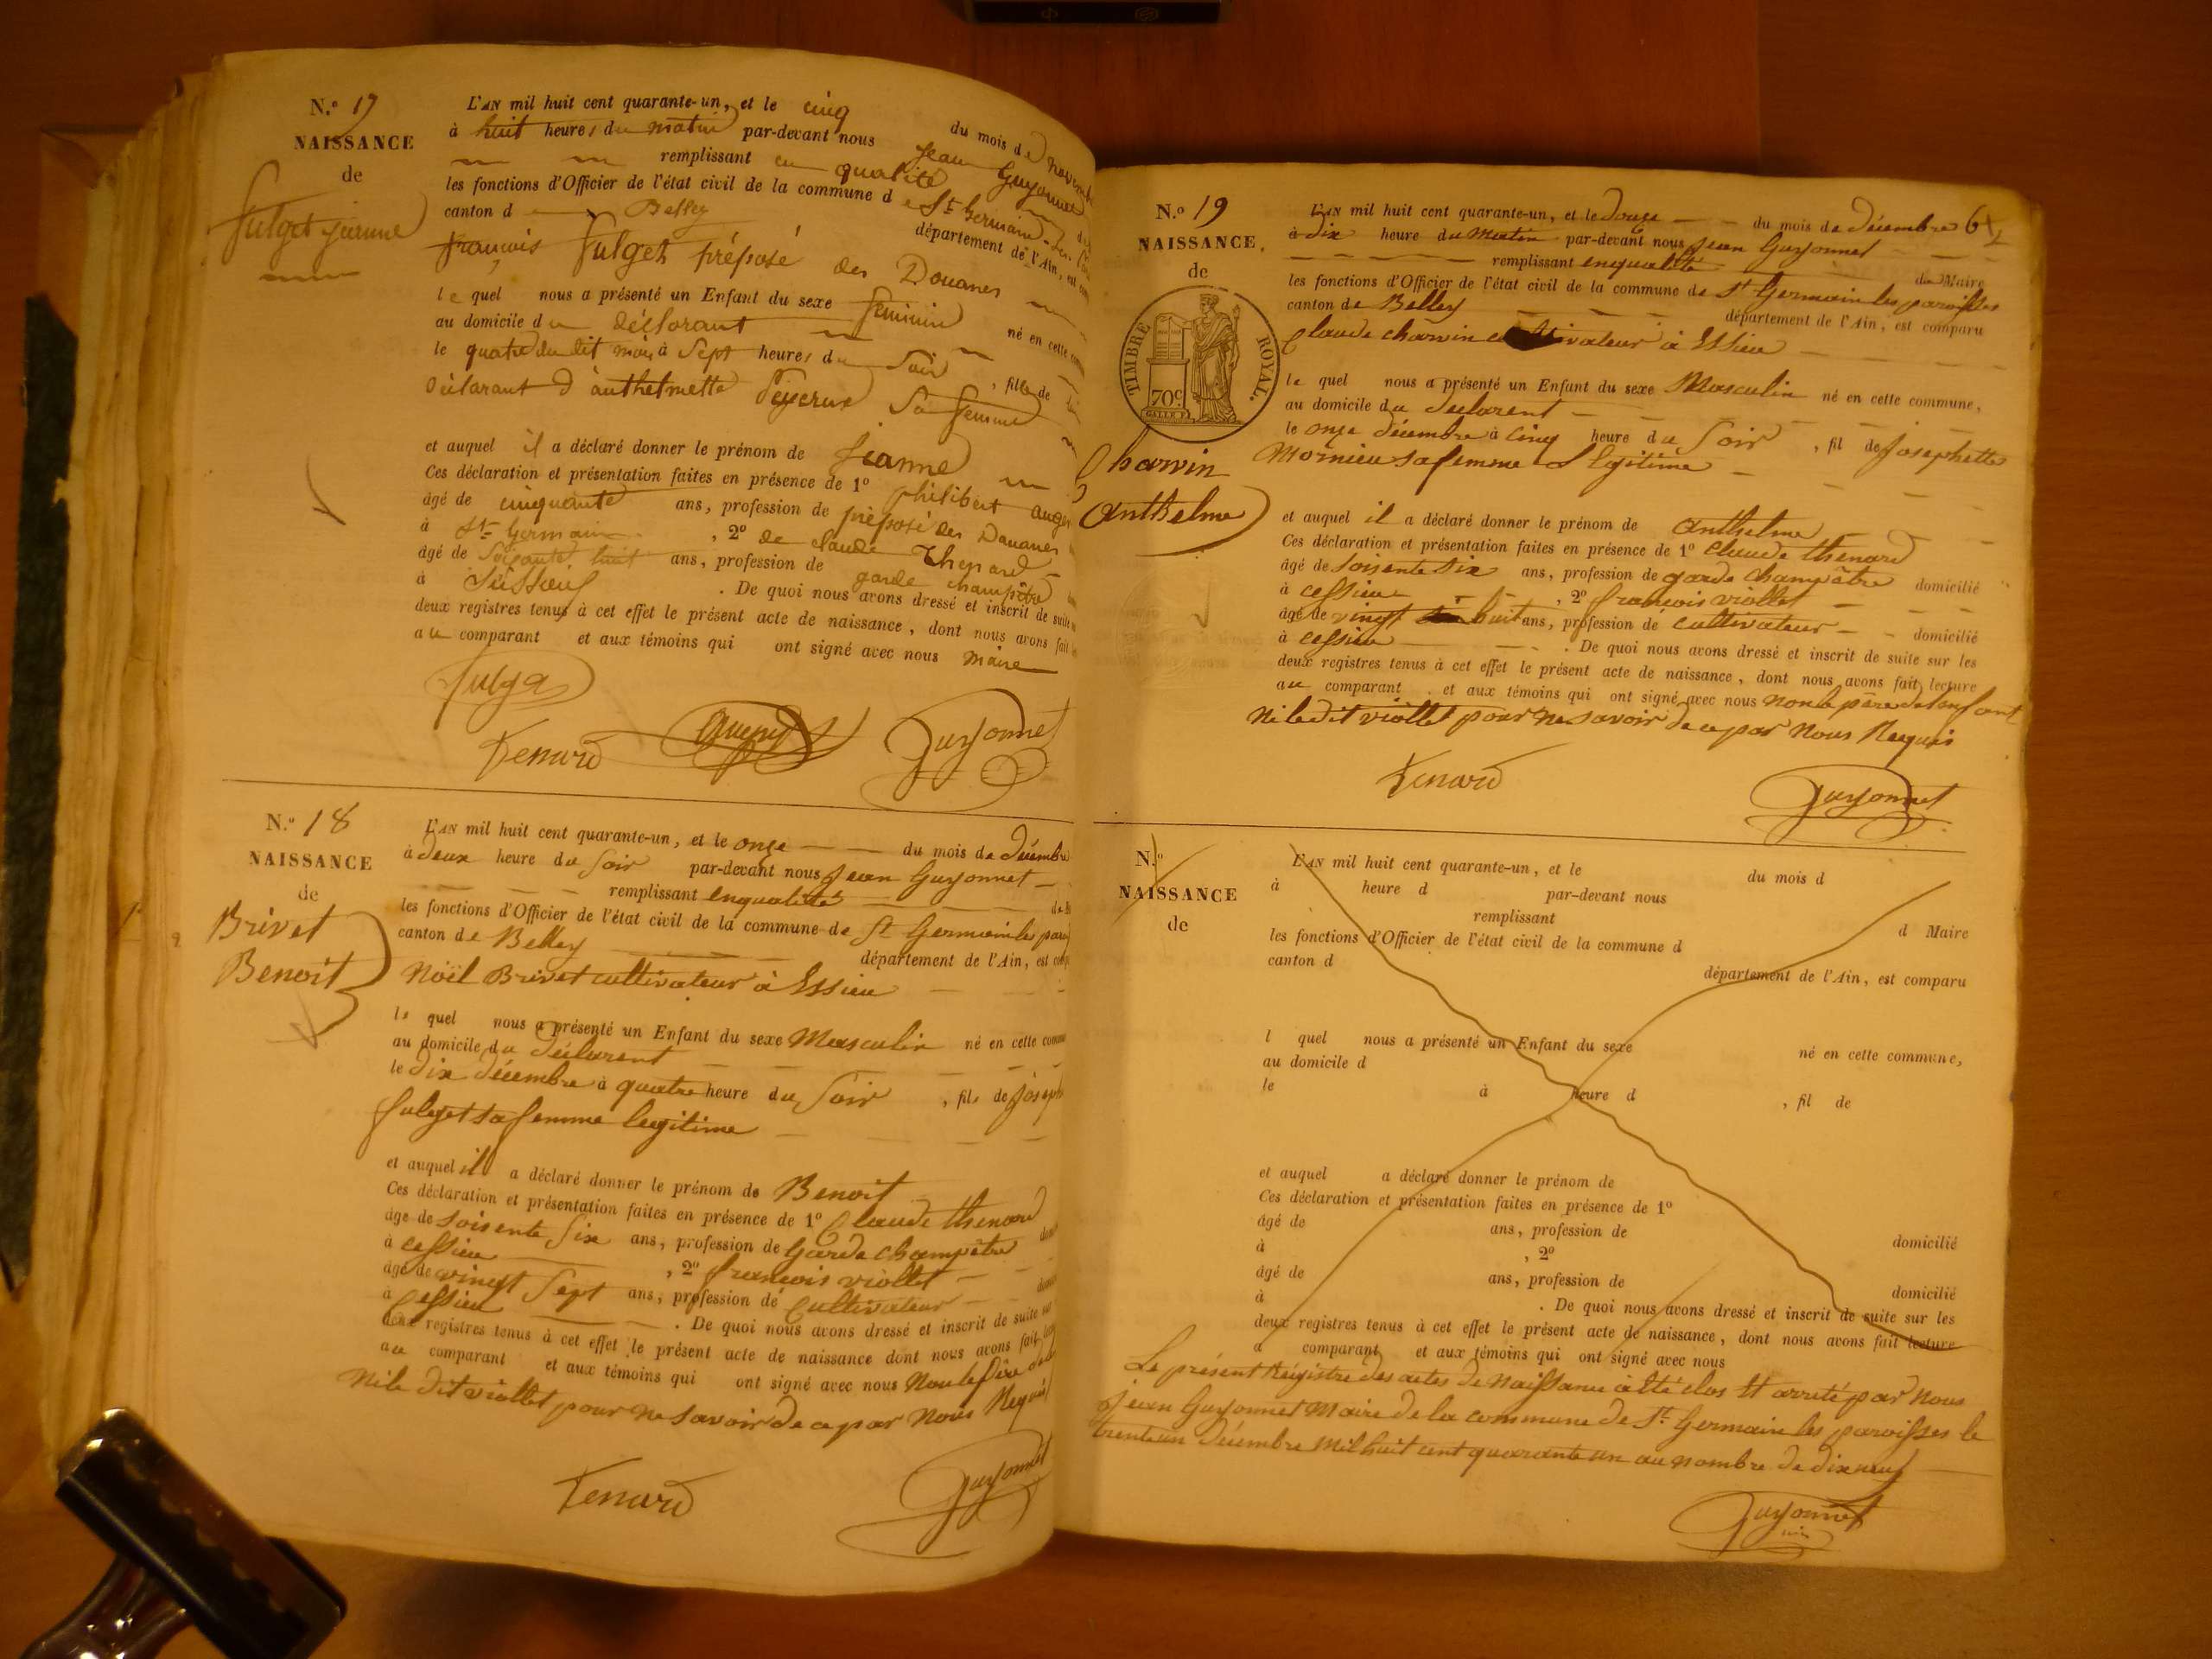 N.º 17
NAISSANCE
de
fulget jeanne
L'AN mil huit cent quarante-un, et le cinq du mois de novembre
à huit heures du matin par-devant nous Jean Guyonnet
remplissant en qualité
les fonctions d'Officier de l'état civil de la commune de St Germain-les
canton d Belley département de l'Ain, est
françois fulget préposé des Douanes
le quel nous a présenté un Enfant du sexe féminin né en cette
au domicile du déclarant
le quatre du dit mois à Sept heures du Soir, fille de
déclarant d'anthelmette Sa femme
et auquel il a déclaré donner le prénom de Jeanne
Ces déclaration et présentation faites en présence de 1º philibert
âgé de cinquante ans, profession de préposé des Douanes
à St Germain, 2º de claude Thenard
âgé de Soixante huit ans, profession de garde champêtre
à . De quoi nous avons dressé et inscrit de suite
deux registres tenus à cet effet le présent acte de naissance, dont nous avons fait
au comparant et aux témoins qui ont signé avec nous maire
fulga
Tenard Guyonnet
N.º 18
NAISSANCE
de
Brivet
Benoit
L'AN mil huit cent quarante-un, et le onze du mois de décembre
à deux heure du Soir par-devant nous Jean Guyonnet
remplissant enqualité
les fonctions d'Officier de l'état civil de la commune de St Germain les
canton de Belley département de l'Ain, est
Noël Brivet cultivateur à Essieu
le quel nous a présenté un Enfant du sexe Masculin né en cette
au domicile du déclarent
le dix décembre à quatre heure du Soir, fils de
fulget sa femme legitime
et auquel il a déclaré donner le prénom de Benoit
Ces déclaration et présentation faites en présence de 1º Claude thenard
âgé de soisente Six ans, profession de Garde Champêtre
à cessieu, 2º françois viollet
âgé de vingt Sept ans, profession de Cultivateur
à Cessieu. De quoi nous avons dressé et inscrit de suite sur
deux registres tenus à cet effet le présent acte de naissance dont nous avons fait
au comparant et aux témoins qui ont signé avec nous Non le père de
Ni le dit viollet pour ne savoir de ce par Nous Requis
Tenard
Guyonnet
64
N.º 19
NAISSANCE
de
TIMBRE ROYAL.
70 C.
Charvin
Anthelme
L'AN mil huit cent quarante-un, et le douze du mois de décembre
à dix heure du Matin par-devant nous Jean Guyonnet
remplissant enqualité de Maire
les fonctions d'Officier de l'état civil de la commune de St Germain les paroisses
canton de Belley département de l'Ain, est comparu
Claude charvin cultivateur à Essieu
le quel nous a présenté un Enfant du sexe Masculin né en cette commune,
au domicile du declarent
le onze décembre à cinq heure du Soir, fil de Josephette
Mornieu sa femme legitime
et auquel il a déclaré donner le prénom de Anthelme
Ces déclaration et présentation faites en présence de 1º Claude thenard
âgé de soisente six ans, profession de garde champêtre domicilié
à cessieu, 2º françois viollet
âgé de vingt huit ans, profession de cultivateur domicilié
à cessieu. De quoi nous avons dressé et inscrit de suite sur les
deux registres tenus à cet effet le présent acte de naissance, dont nous avons fait lecture
au comparant et aux témoins qui ont signé avec nous non le père de lenfant
Ni le dit viollet pour ne savoir de ce par Nous Requis
Tenard
Guyonnet
N.º
NAISSANCE
de
L'AN mil huit cent quarante-un, et le du mois d
à heure d par-devant nous
remplissant d Maire
les fonctions d'Officier de l'état civil de la commune d
canton d département de l'Ain, est comparu
l quel nous a présenté un Enfant du sexe né en cette commune,
au domicile d
le à heure d , fil de
et auquel a déclaré donner le prénom de
Ces déclaration et présentation faites en présence de 1º
âgé de ans, profession de domicilié
à , 2º
âgé de ans, profession de domicilié
à . De quoi nous avons dressé et inscrit de suite sur les
deux registres tenus à cet effet le présent acte de naissance, dont nous avons fait lecture
a comparant et aux témoins qui ont signé avec nous
Le présent Régistre des actes de naissance à été clos et arreté par Nous
Jean Guyonnet Maire de la commune de St Germain les paroisses le
trente un décembre mil huit cent quarante un au nombre de dix neuf
Guyonnet